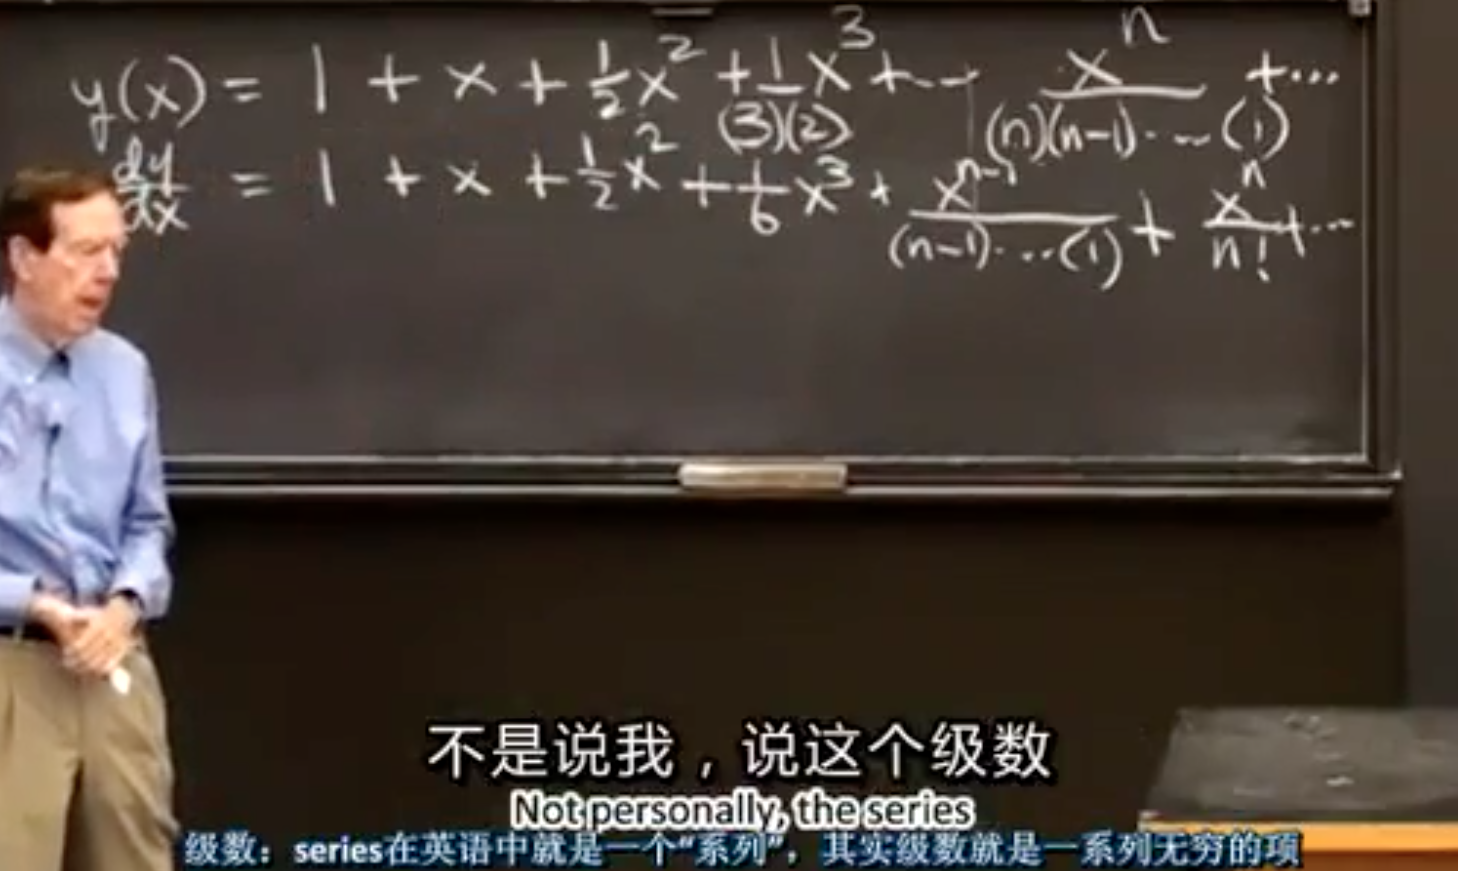 y(x) = 1 + x + 1/2 x^2 + 1/(3)(2) x^3 + - x^n/(n)(n-1)·--(1) + ...
dy/dx = 1 + x + 1/2 x^2 + 1/6 x^3 + x^(n-1)/(n-1)·...(1) + x^n/n! + ...
不是说我，说这个级数
Not personally, the series
级数：series在英语中就是一个“系列”，其实级数就是一系列无穷的项